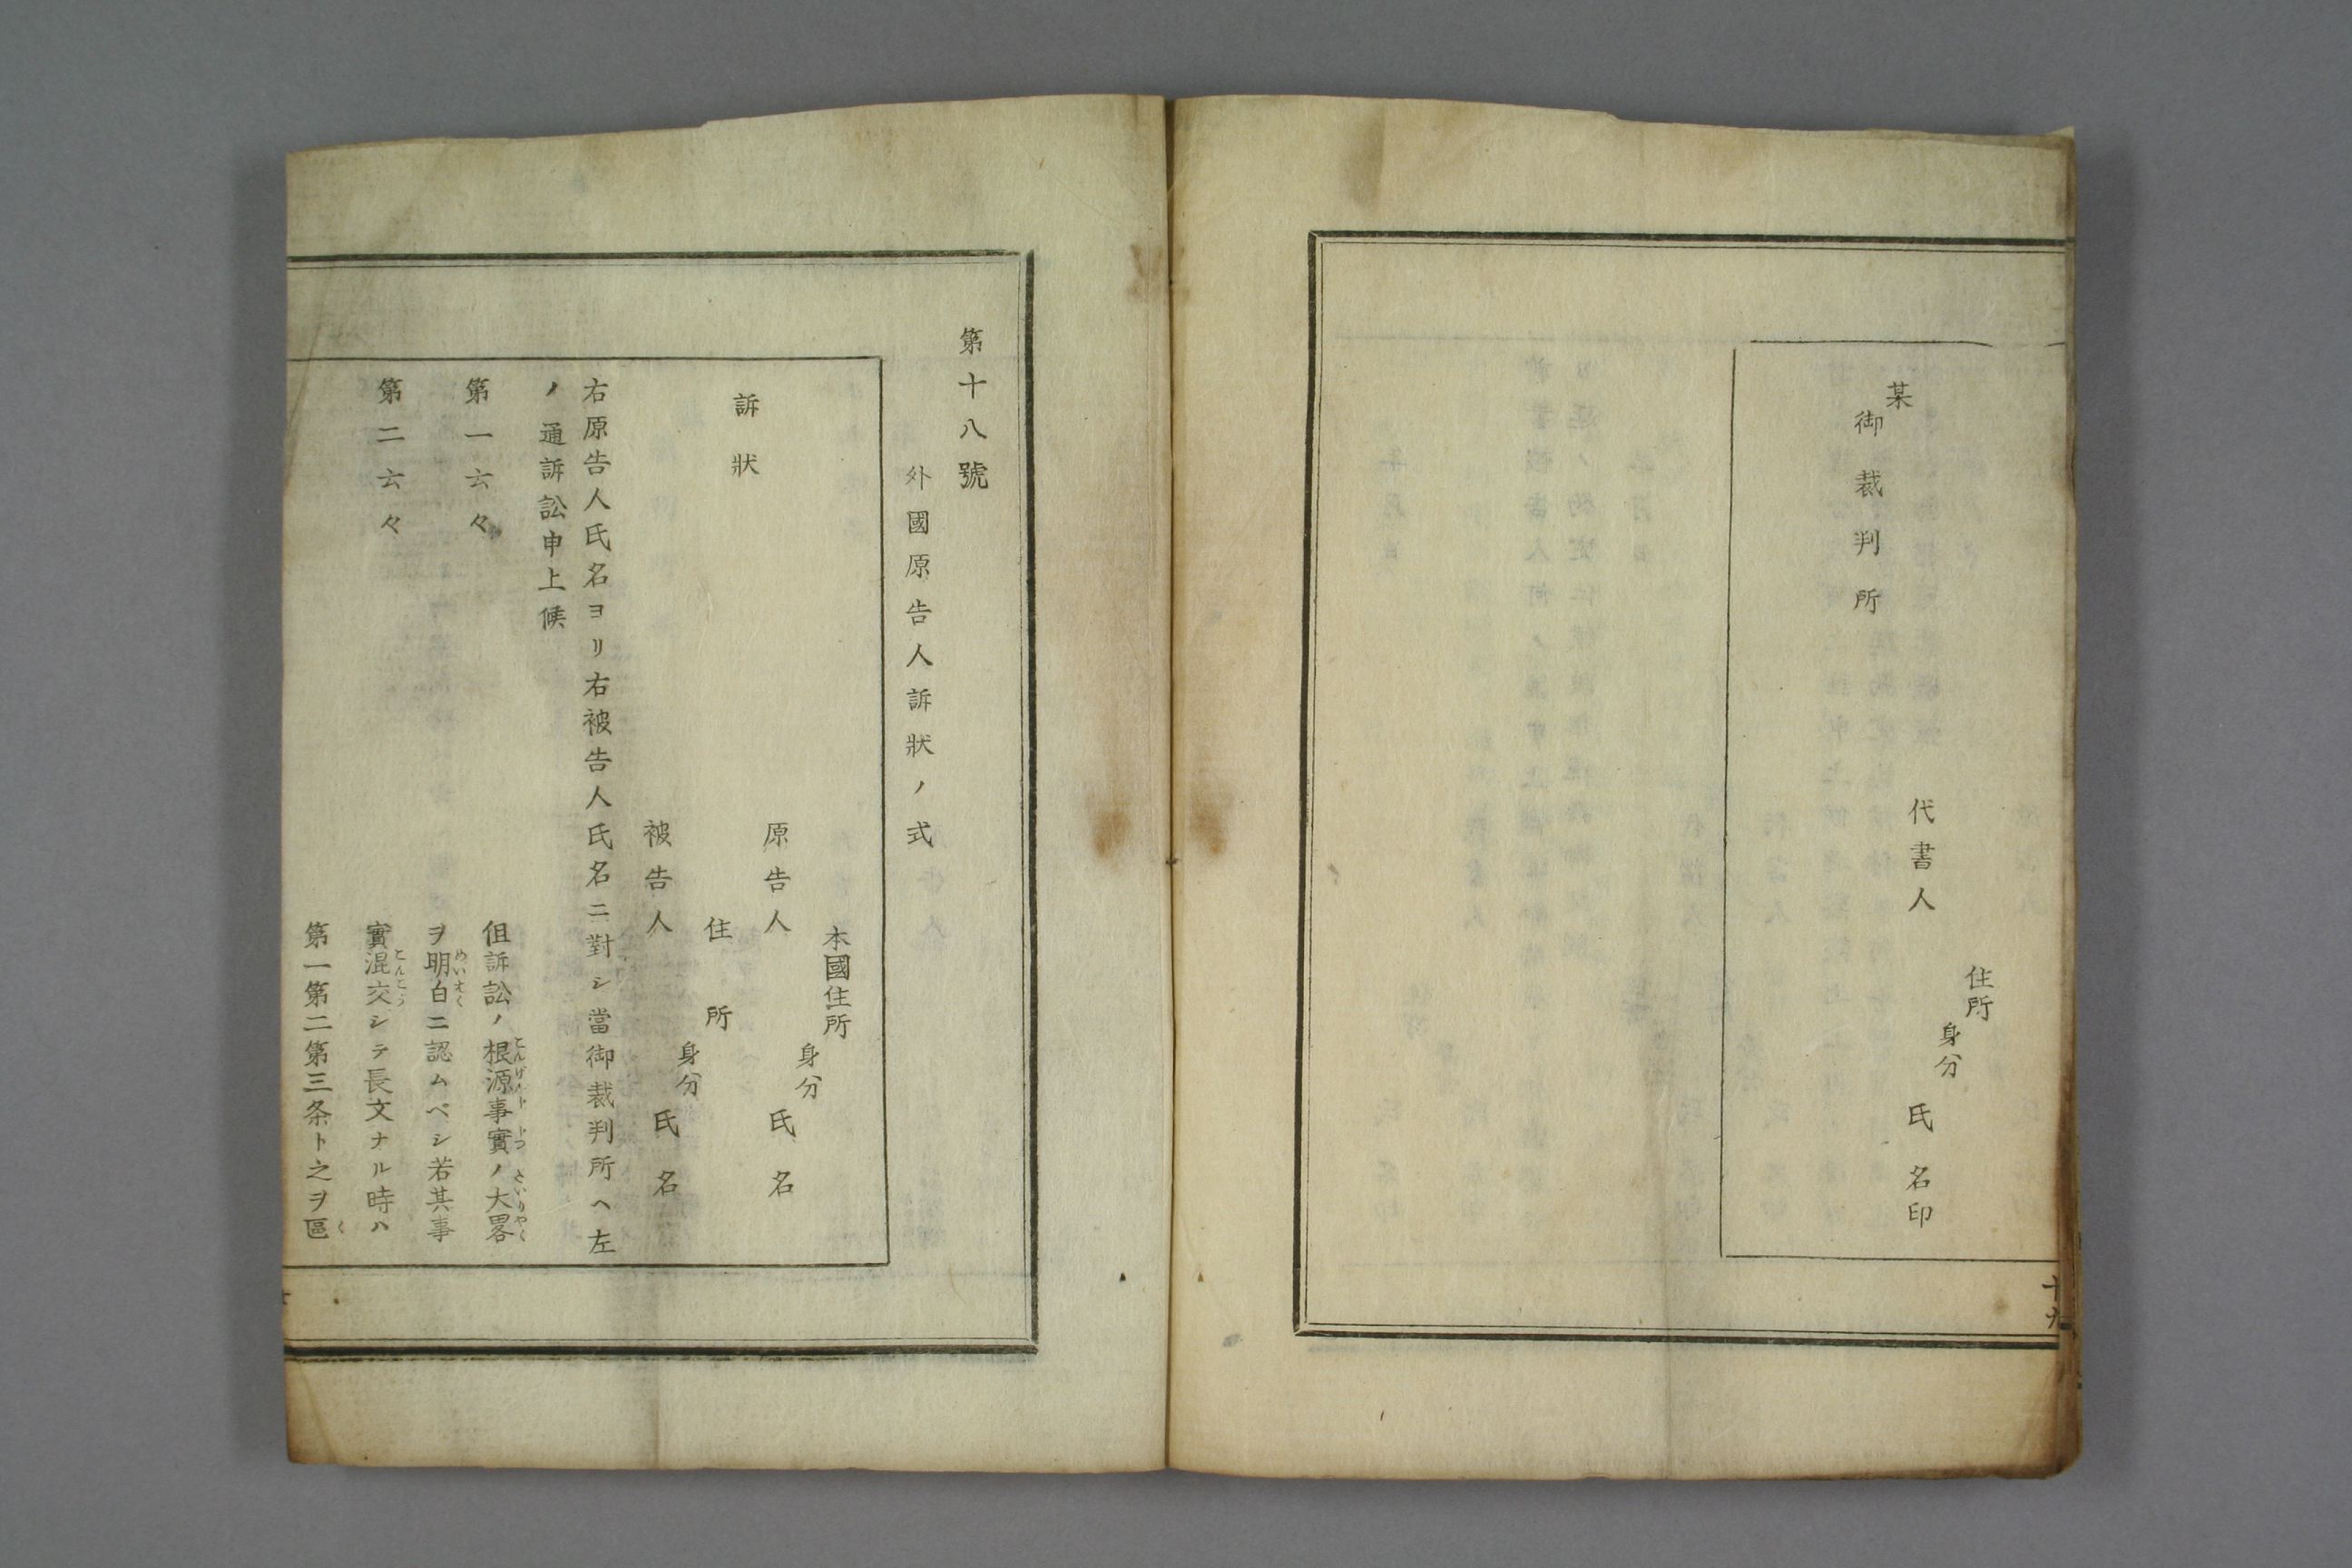 住所
身分
代書人 氏名印
某
御裁判所
十九
第十八號
外國原告人訴狀ノ式
本國住所
身分
原告人 氏名
訴狀
住所
身分
被告人 氏名
右原告人氏名ヨリ右被告人氏名ニ對シ當御裁判所ヘ左
ノ通訴訟申上候
第一云々
伹訴訟ノ根源事實ノ大畧
ヲ明白ニ認ムベシ若其事
第二云々
實混交シテ長文ナル時ハ
第一第二第三条ト之ヲ區